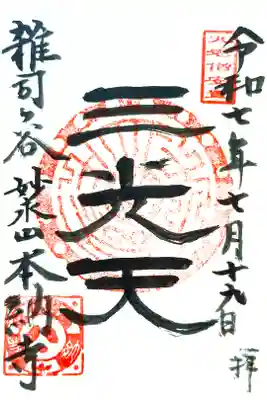 令和七年七月十九日 拝
三光天
雑司ヶ谷 妙永山本納寺